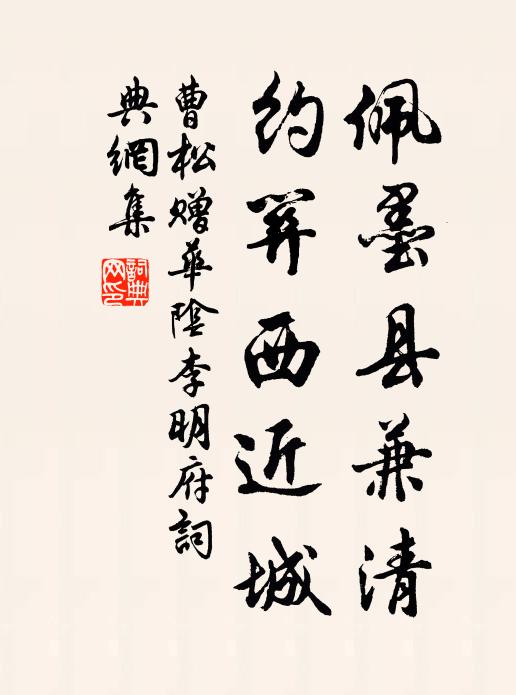 佩墨县兼清
約笄西近城
曹松贈華陰李明府詞
典網集
詞典
网印